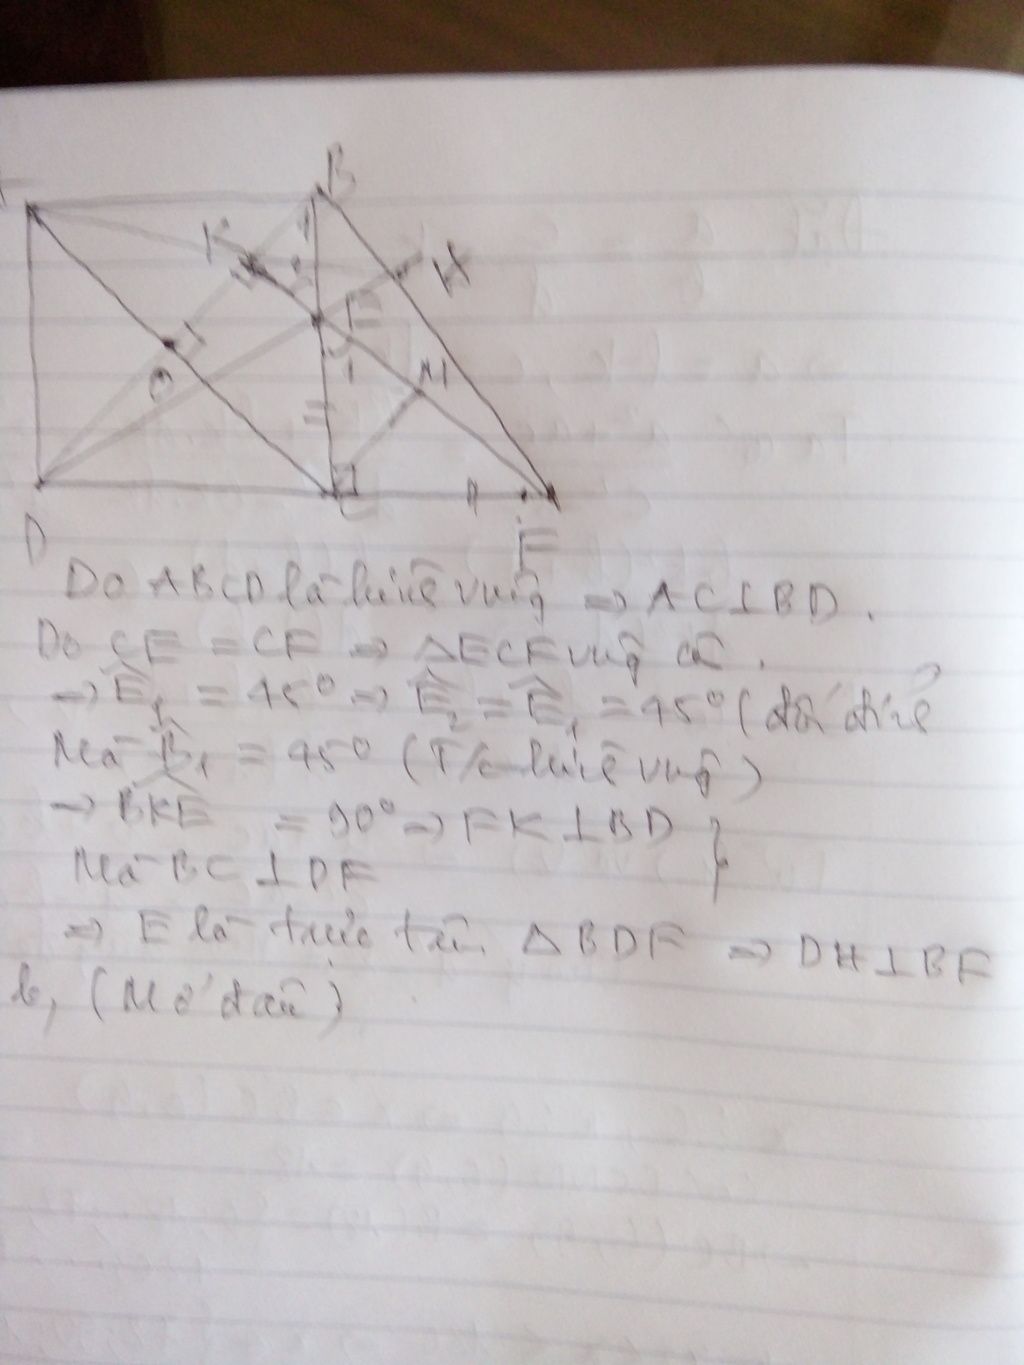 B
K
H
2
E
1
M
O
D
C
F
Do ABCD là hình vuông => AC⊥BD.
Do CE = CF => ΔECF vuông cân.
=> Ê₁ = 45° => Ê₂ = Ê₁ = 45° (đối đỉnh
Mà B̂₁ = 45° (T/c hình vuông)
=> BKE = 90° => FK⊥BD }
Mà BC⊥DF
=> E là trực tâm ΔBDF => DH⊥BF
b, (Mở đầu)